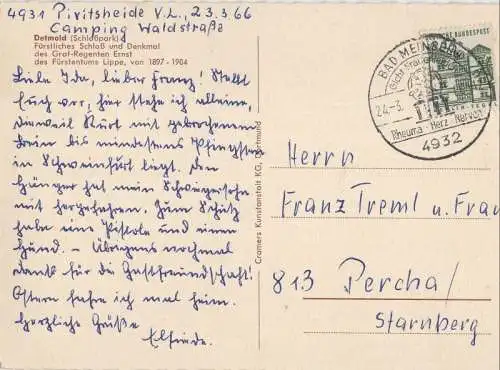 4931 Pivitsheide V.L., 23.3.66
Camping Waldstraße
Detmold (Schloßpark)
Fürstliches Schloß und Denkmal
des Graf-Regenten Ernst
des Fürstentums Lippe, von 1897-1904
Liebe Ida, lieber Franz! Stellt
Euch vor, hier stehe ich alleine,
dieweil Kurt mit gebrochenem
Bein bis mindestens Pfingsten
in Schweinfurt liegt. Den
Hänger hat mein Schwiegersohn
mit hergefahren. Zum Schutz
habe eine Pistole und einen
Hund. - Übrigens nochmal
Dank für die Gastfreundschaft!
Ostern fahre ich mal heim.
Herzliche Grüße
Elfriede.
Cramers Kunstanstalt KG, Dortmund
BAD MEINBERG
24.-3.
Rheuma - Herz - Nerven
4932
Herrn
Franz Treml u. Frau
813 Percha/
Starnberg